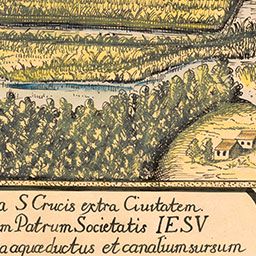 a S Crucis extra Ciuitatem
m Patrum Societatis IESV
a aquæductus et canalium sursum